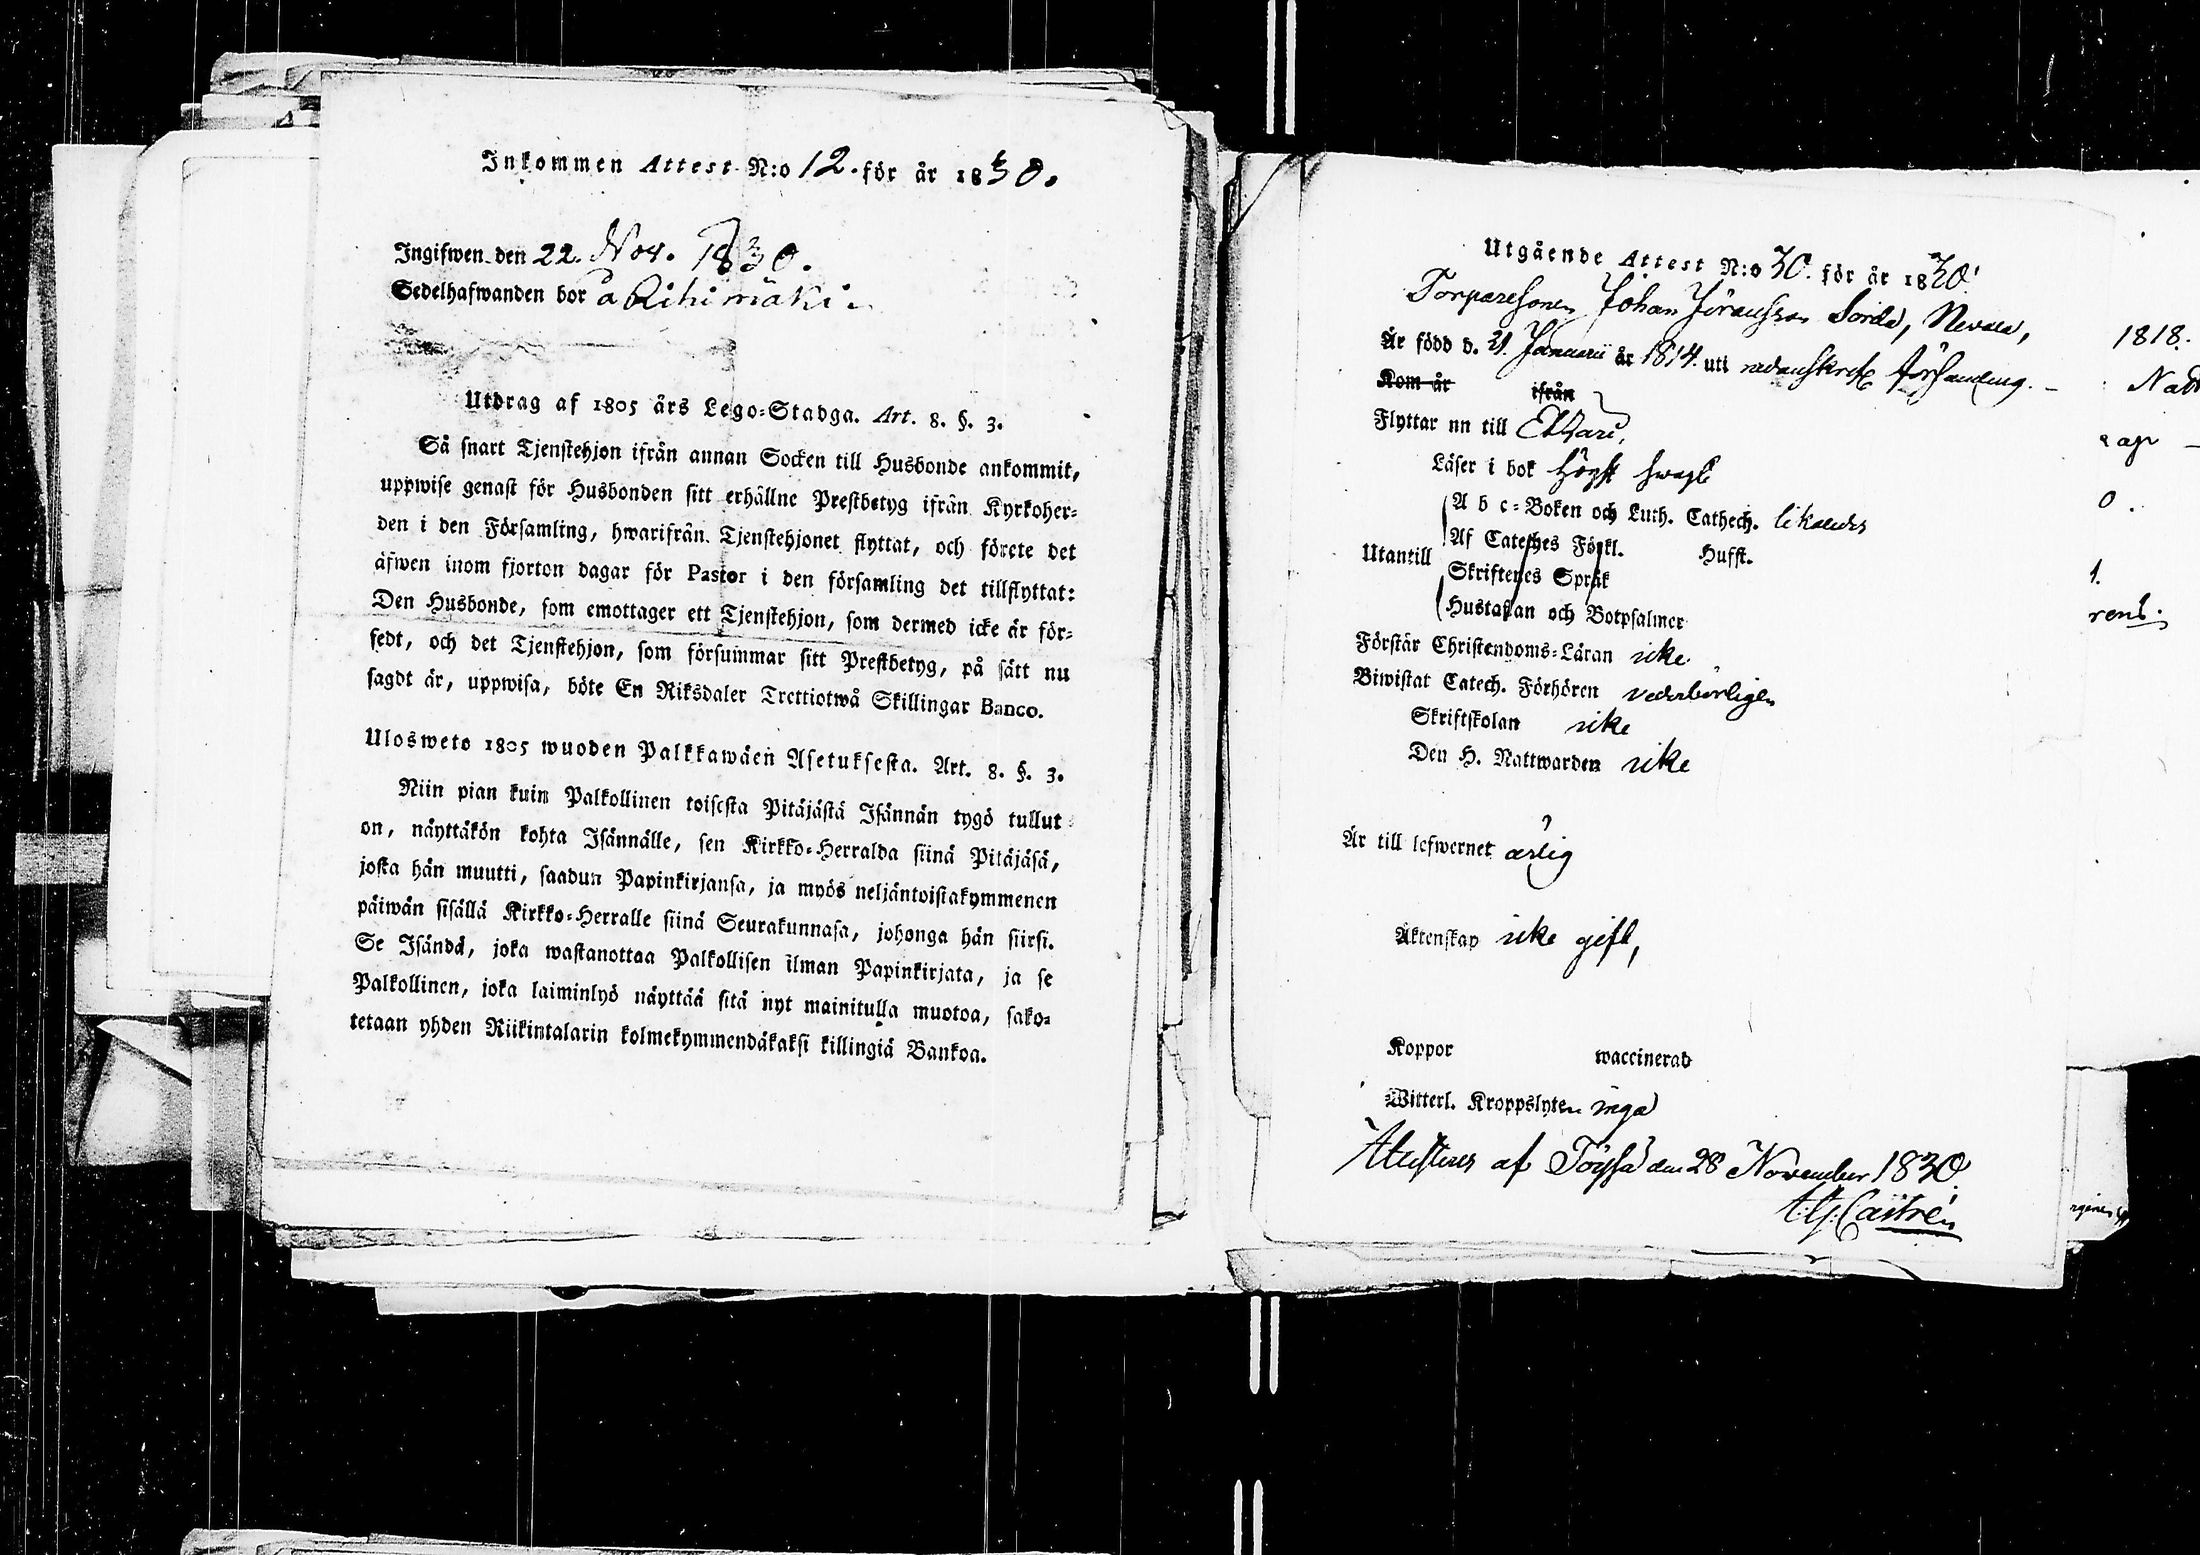 Inkommen Attest N:o 12. för år 1830.
Ingifwen den 22. Nov. 1830.
Sedelhafwanden bor å Rihimäki.
Utdrag af 1805 års Lego-Stadga. Art. 8. §. 3.
Så snart Tjenstehjon ifrån annan Socken till Husbonde ankommit,
uppwise genast för Husbonden sitt erhållne Prestbetyg ifrån Kyrkoher-
den i den Församling, hwarifrån Tjenstehjonet flyttat, och förete det
äfwen inom fjorton dagar för Pastor i den församling det tillflyttat:
Den Husbonde, som emottager ett Tjenstehjon, som dermed icke är för-
sedt, och det Tjenstehjon, som försummar sitt Prestbetyg, på sätt nu
sagdt är, uppwisa, böte En Riksdaler Trettiotwå Skillingar Banco.
Ulosweto 1805 wuoden Palkkawäen Asetuksesta. Art. 8. §. 3.
Niin pian kuin Palkollinen toisesta Pitäjästä Isännän tygö tullut
on, näyttäkön kohta Isännälle, sen Kirkko-Herralda siinä Pitäjäsä,
josta hän muutti, saadun Papinkirjansa, ja myös neljäntoistakymmenen
päiwän sisällä Kirkko-Herralle siinä Seurakunnasa, johonga hän siirsi.
Se Isändä, joka wastanottaa Palkollisen ilman Papinkirjata, ja se
Palkollinen, joka laiminlyö näyttää sitä nyt mainitulla muotoa, sako-
tetaan yhden Riikintalarin kolmekymmendäkaksi killingiä Bankoa.
Utgående Attest N:o 30. för år 1830.
Torparesonen Johan Jöransson Sorila, Nevala,
Är född d. 21. Januarii år 1814. uti nedanskrefne församling.
Kom år ifrån
Flyttar nu till Etseri,
Läser i bok högst swagt
A b c-Boken och Luth. Cathech. likaledes
Af Cateches Förkl. Hufst.
Utantill Skriftenes Språk
Hustaflan och Botpsalmer
Förstår Christendoms-Läran icke
Biwistat Catech. Förhören vederbörligen
Skriftskolan icke
Den H. Nattwarden icke
Är till lefwernet ärlig
Äktenskap icke gift,
Koppor waccinerad
Witterl. Kroppslyten inga
Attesteras af Töysä den 28 November 1830.
Castrén
1818.
0.
1.